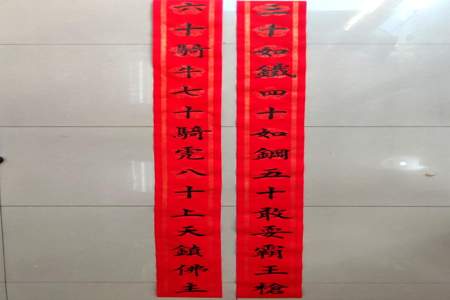 三十如鐵四十如鋼五十敢耍霸王槍
六十騎牛七十騎虎八十上天鎮佛主